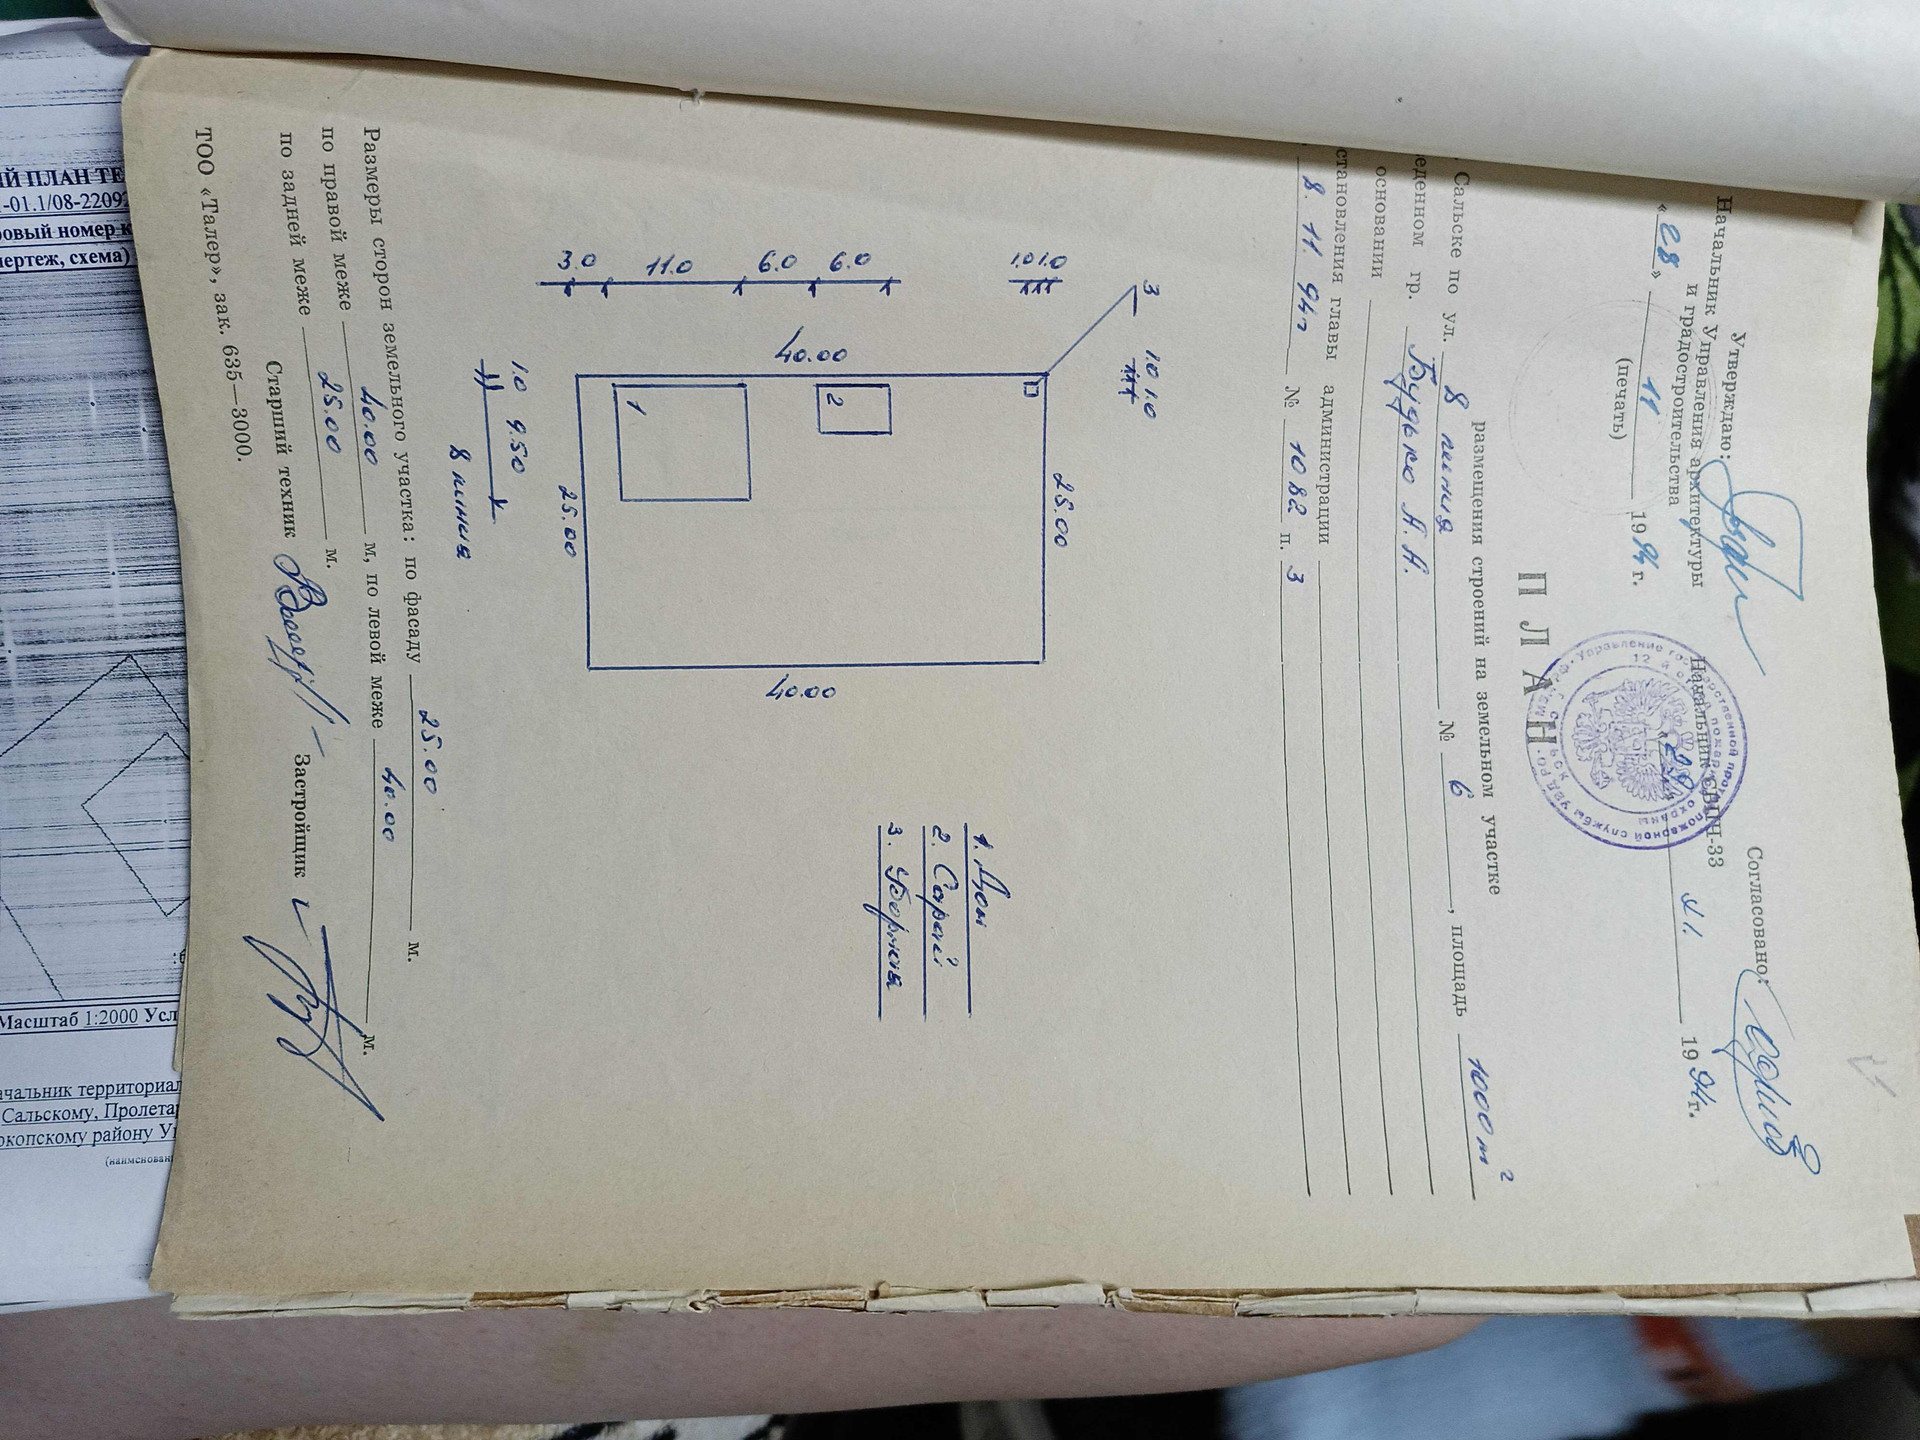 Утверждаю:
Начальник Управления архитектуры
и градостроительства
«28» 11 1994 г.
(печать)
Согласовано:
Начальник СВПЧ-33
«29» XI. 1994 г.
ПЛАН
размещения строений на земельном участке
Сальске по ул. 8 линия № 6, площадь 1000 м²
еденном гр. Будько А. А.
основании
становления главы администрации
8. 11. 94г № 1082 п. 3
3
1.0 1.0
1.0 1.0
25.00
40.00
40.00
25.00
6.0
6.0
11.0
3.0
2
1
1. Дом
2. Сарай
3. Уборная
1.0 9.50
8 линия
Размеры сторон земельного участка: по фасаду 25.00 м.
по правой меже 40.00 м, по левой меже 40.00 м.
по задней меже 25.00 м.
Старший техник Застройщик
ТОО «Талер», зак. 635—3000.
ИЙ ПЛАН ТЕ
-01.1/08-2209
овый номер к
чертеж, схема)
Масштаб 1:2000 Усл
ачальник территориал
Сальскому, Пролетар
окопскому району У
(наименован